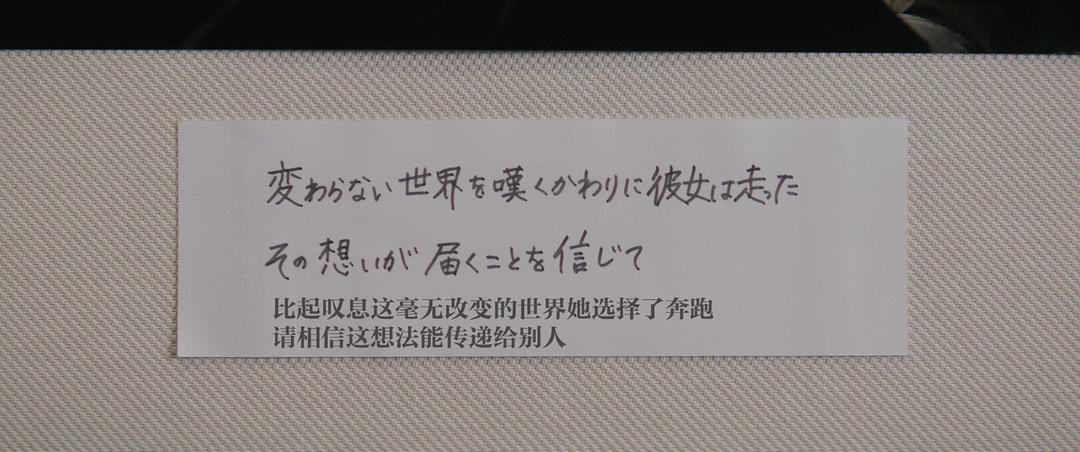 変わらない世界を嘆くかわりに彼女は走った
その想いが届くことを信じて
比起叹息这毫无改变的世界她选择了奔跑
请相信这想法能传递给别人